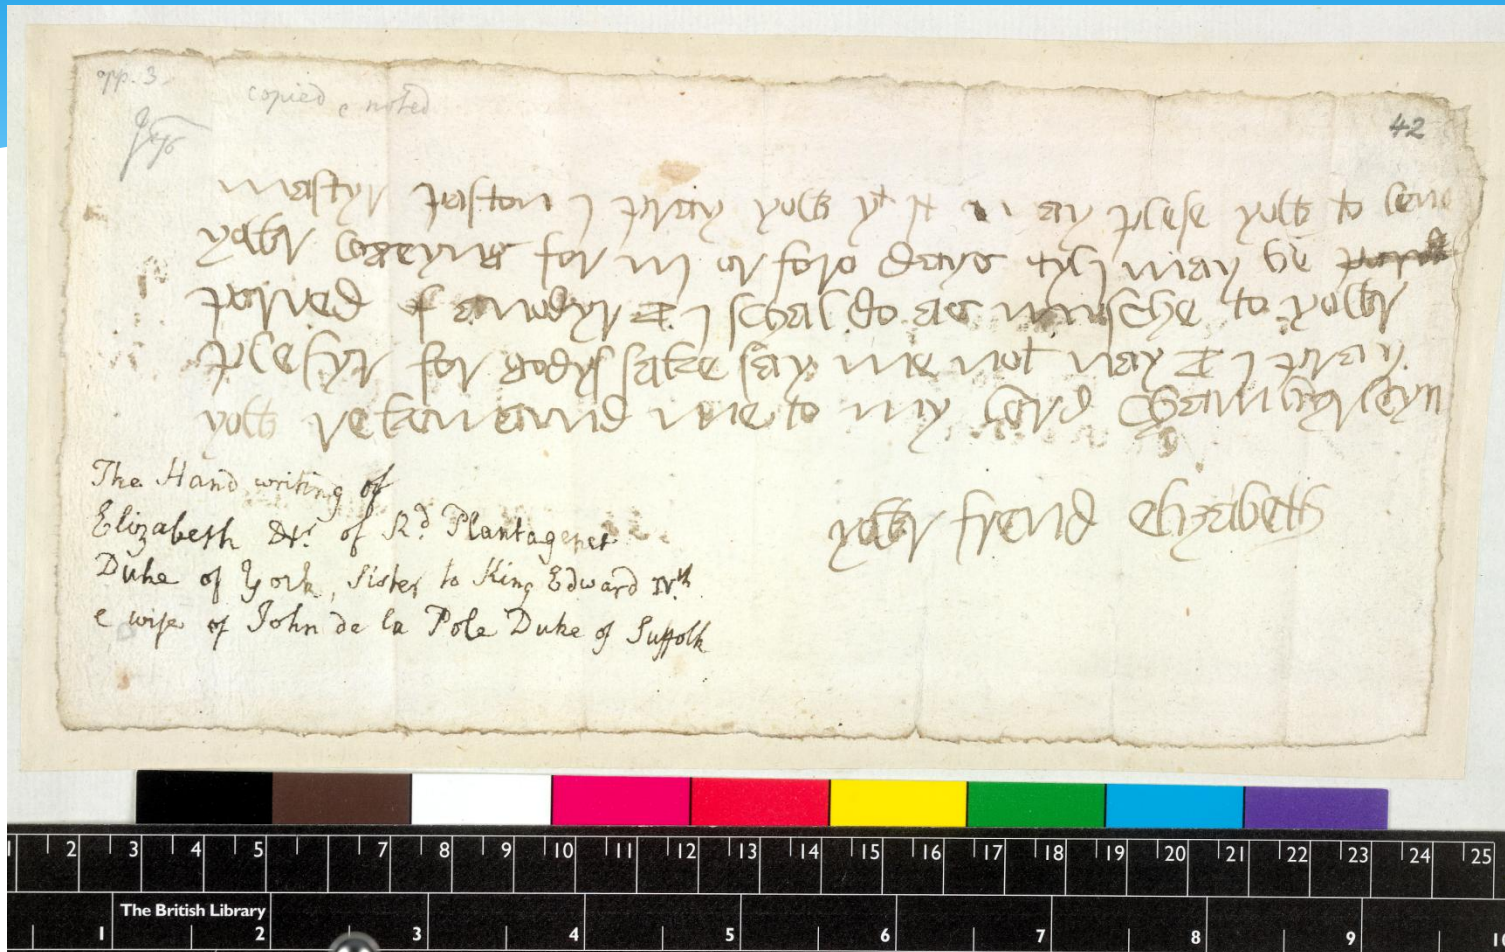 opp. 3.
copied & noted
42
mastyr paston j pray yow yt yt m ay plese yow to leve
yowr logeyng for iij or fore days tyl j may be
porved of anodyr & j schal do as musche to yowr
plesyr for godys sake say me not nay & j pray
yow rekemaund me to my lord chambyrleyn
yowr frend elizabeth
The Hand writing of
Elizabeth dr. of Rd. Plantagenet
Duke of York, sister to King Edward IVth.
& wife of John de la Pole Duke of Suffolk
1 2 3 4 5 7 8 9 10 11 12 13 14 15 16 17 18 19 20 21 22 23 24 25
The British Library
1 2 3 4 5 6 7 8 9 10